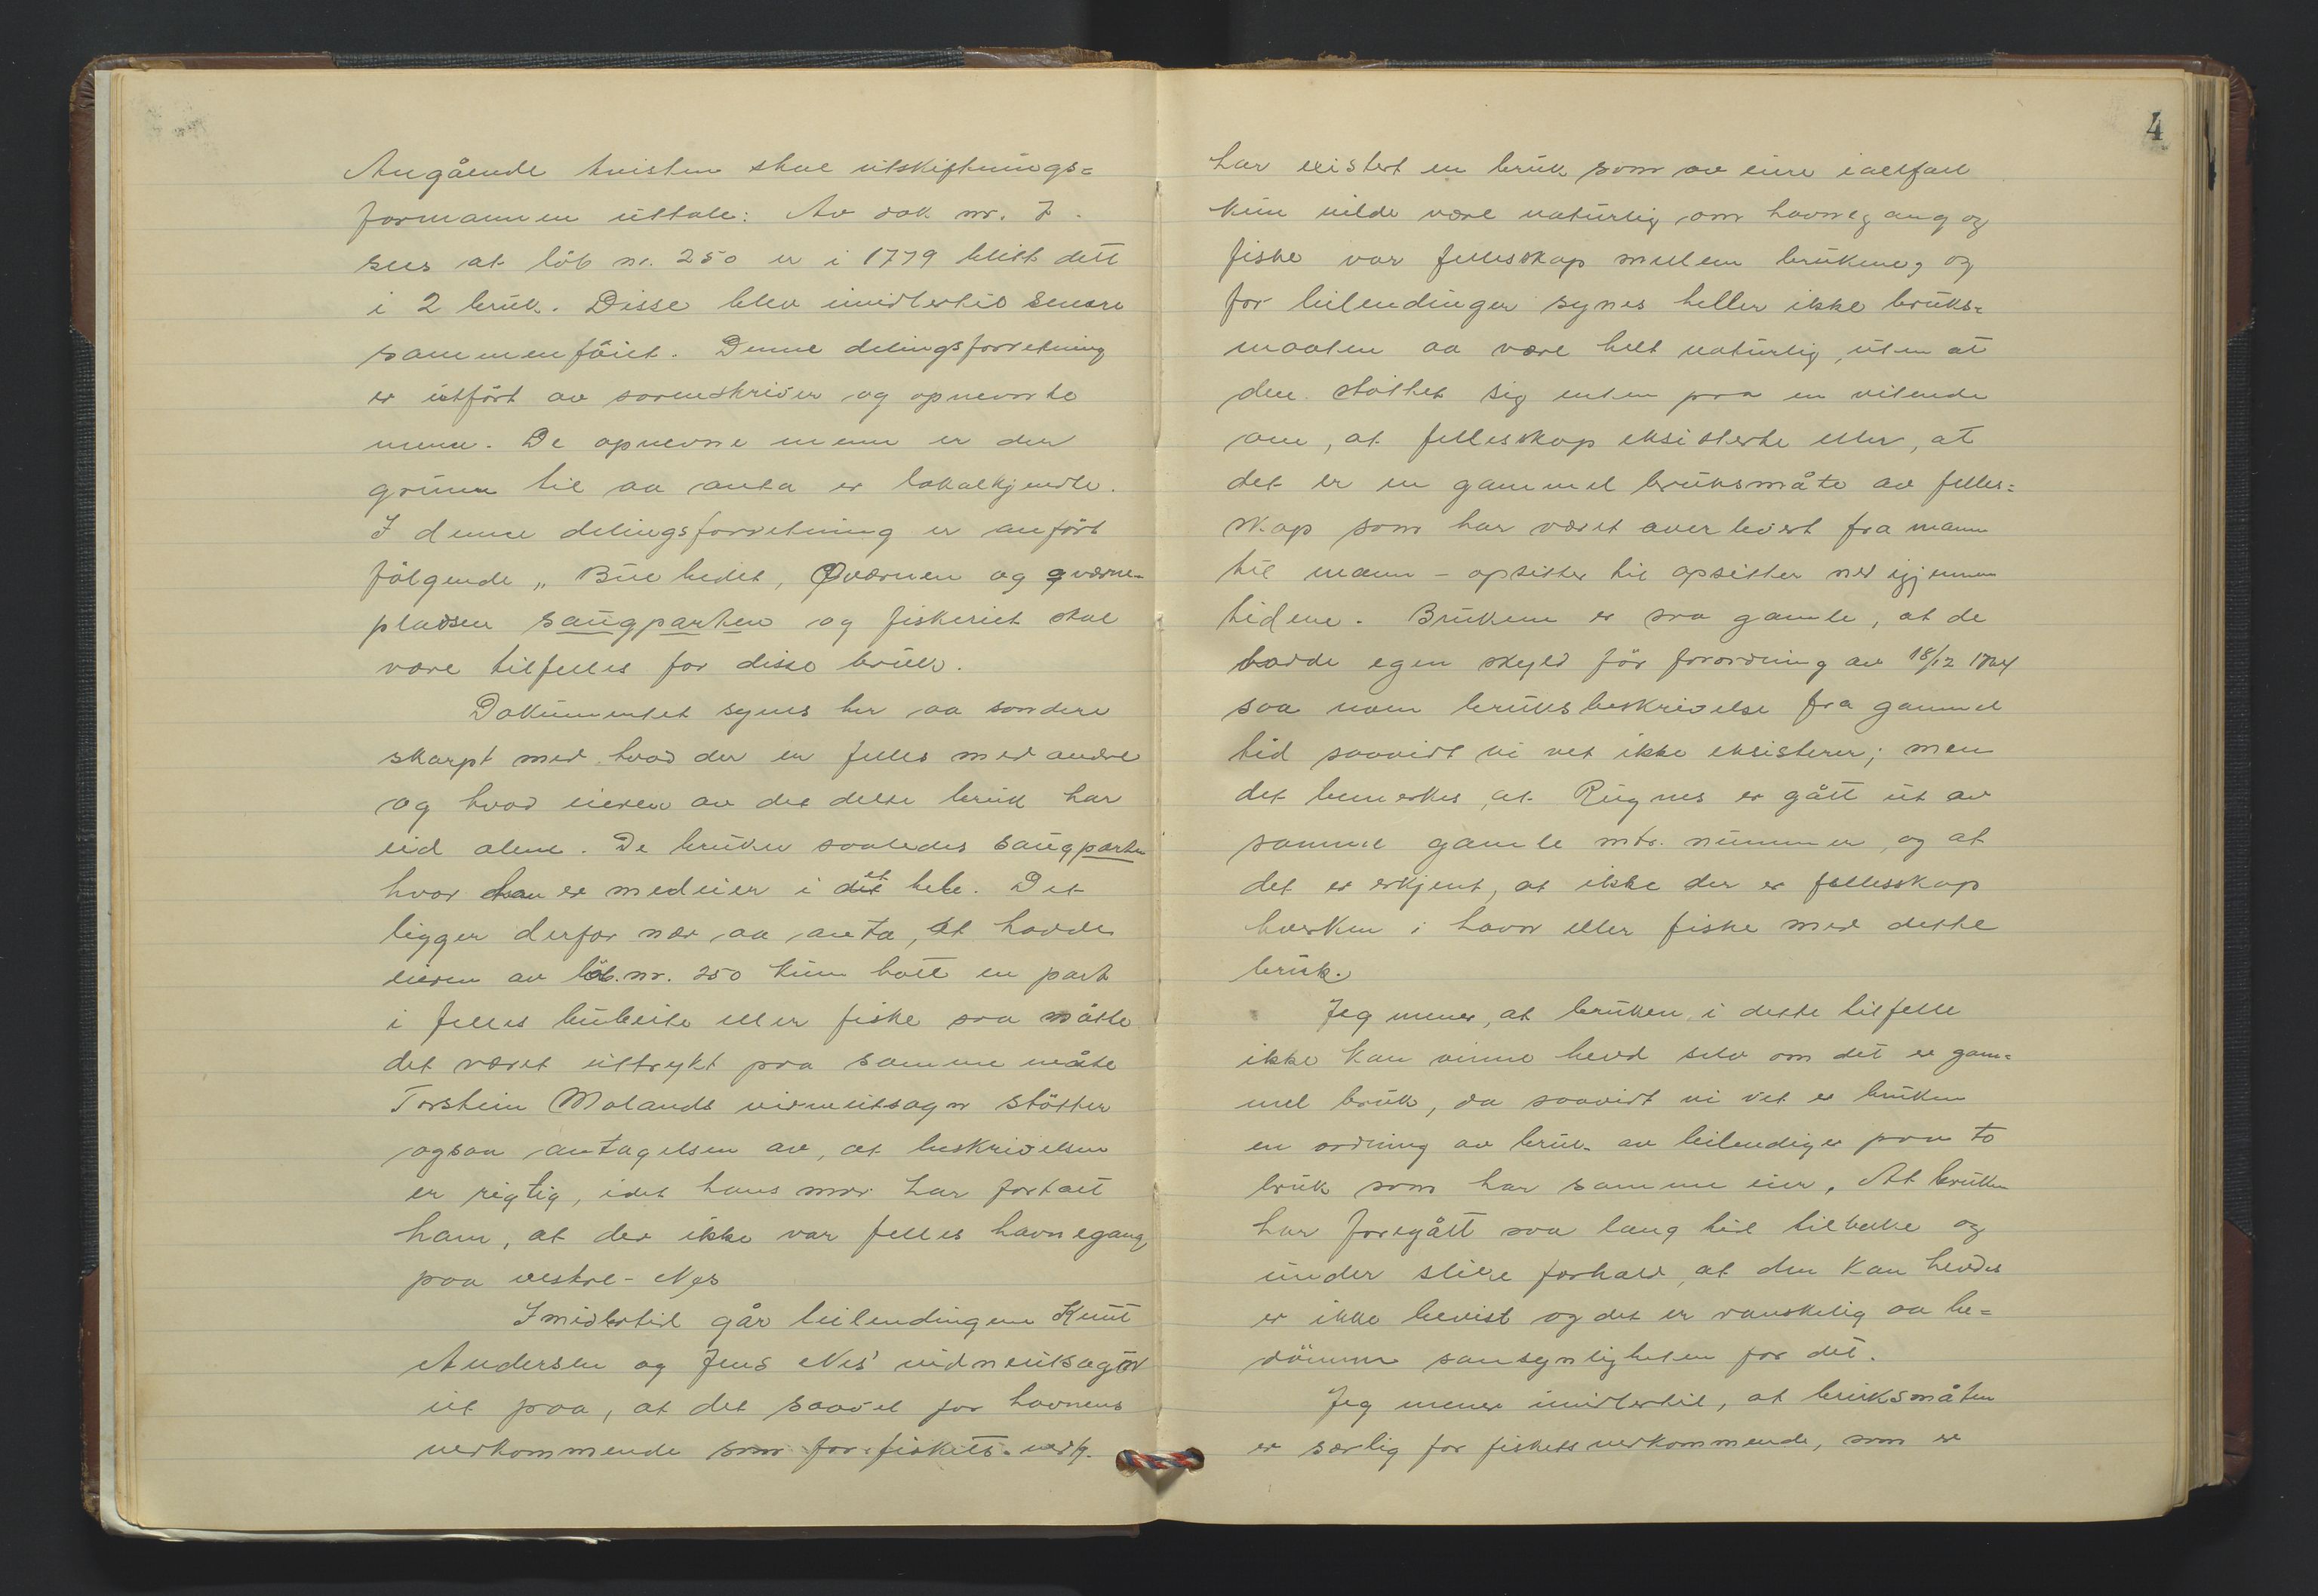 Angående tvisten skal utskiftnings=
formannen uttale: Av dok nr. 7.
sees at löb nr. 250 er i 1779 blitt delt
i 2 bruk. Disse blev imidlertid senere
sammenföiet. Denne delingsforretning
er utfört av sorenskriver og opnevnte
menn. De opnevne menn er der
grunn til aa anta er lokalkjendte.
I denne delingsforretning er anfört
fölgende „Bue bedet, Qværnen og qværne-
pladsen saugparten og fiskeriet skal
være tilfelles for disse bruk.
Dokumentet synes her aa sondere
skarpt med hvad der er felles med andre
og hvad eieren av det delte bruk har
eid alene. De bruker saaledes saugparten
hvor han er medeier i et hele. Det
ligger derfor nær aa anta, at hadde
eieren av löb.nr. 250 kun hatt en part
i felles bubeite eller fiske saa måtte
det været uttrykt paa samme måte
Torstein Molands vidneutsagn støtter
ogsaa antagelsen av, at beskrivelsen
er rigtig, idet hans mor har fortalt
ham, at der ikke var felles havnegang
paa vestre-Nes
Imidlertid går leilendingene Knut
Andersen og Jens Nes' vidneutsagn
ut paa, at det saavel for havnens
vedkommende som for fiskets vedk.
4
har existert en bruk som av eiere iallfall
kun vilde være naturlig om havnegang og
fiske var fellesskap mellem brukene, og
for leilendinger synes heller ikke bruks=
maaten aa være helt naturlig, uten at
den støttet sig enten paa en vitende
om, at fellesskap eksisterte eller, at
det er en gammel bruksmåte av felles=
skap som har været overlevert fra mann
til mann - opsitter til opsitter ned igjennem
tidene. Brukene er saa gamle, at de
hadde egen skyld för forordning av 18/12 1764
saa noen bruksbeskrivelse fra gammel
tid saavidt vi vet ikke eksisterer; men
det bemerkes, at Rugnes er gått ut av
samme gamle mtr. nummer, og at
det er erkjent, at ikke der er fellesskap
hverken i havn eller fiske med dette
bruk.
Jeg mener, at bruken i dette tilfelle
ikke kan vinne hevd selv om det er gam=
mel bruk, da saavidt vi vet er bruken
en ordning av bruk av leilendiger paa to
bruk som har samme eier. At bruken
har foregått saa lang tid tilbake og
under slike forhold, at den kan hevdes
er ikke bevist og det er vanskelig aa be=
dömme sansynligheten for det.
Jeg mener imidlertid, at bruksmåten
er særlig for fiskets vedkommende, som er